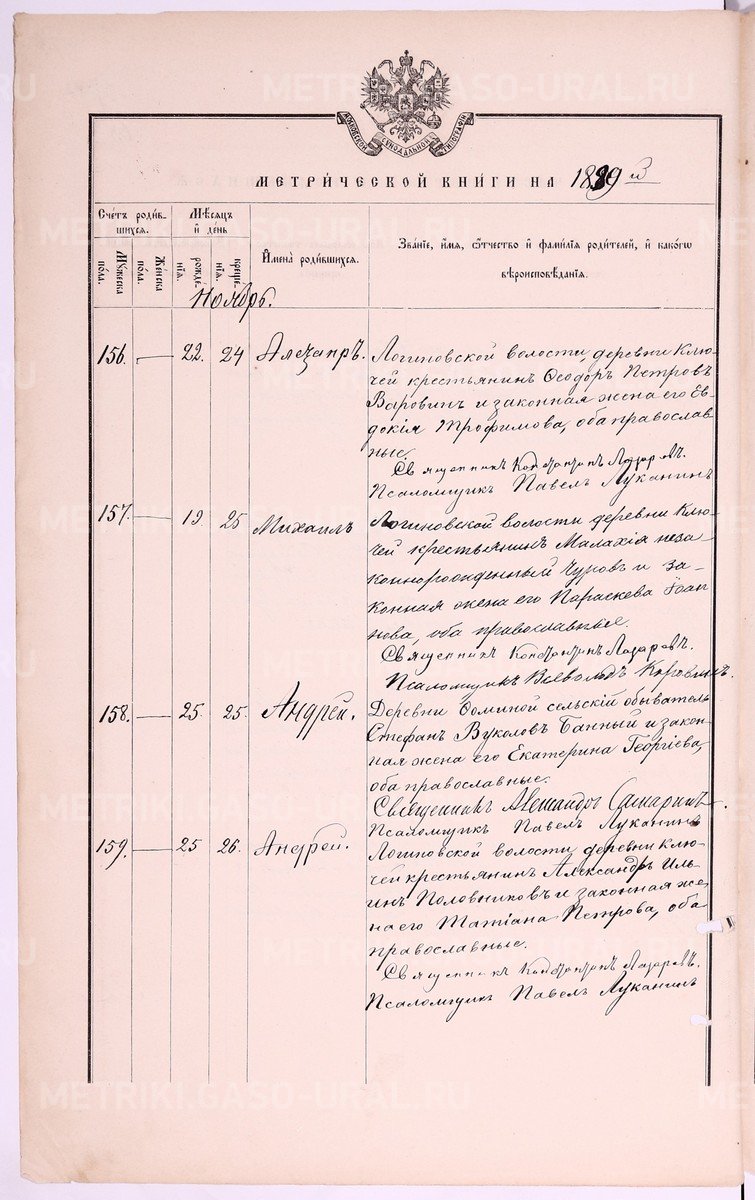 METRIKI.GASO-URAL.RU
МОСКОВСКОЙ СѴНОДАЛЬНОЙ ТИПОГРАФІИ
МЕТРИ́ЧЕСКОЙ КНИ́ГИ НА 1889
Сче́тъ роди́в-
шихся.
Мѣ́сяцъ
и҆ де́нь
Мꙋ́жеска
по́ла.
Же́нска
по́ла.
рожде́-
нїѧ.
креще́-
нїѧ.
И҆мена̀ роди́вшихся.
Зва́нїе, и҆́мѧ, ѻ҆́тчество и҆ фами́лїѧ роди́телей, и҆ како́гѡ
вѣроисповѣ́данїѧ.
Ноябрь.
156. — 22. 24 Алезапръ. Логиновской волости, деревни Клю-
чей крестьянинъ Ѳеодоръ Петровъ
Варовинъ и законная жена его Ев-
докія Трофимова, оба православ-
ные.
Священникъ Константинъ Лазаревъ.
Псаломщикъ Павелъ Луканинъ
157. — 19. 25 Михаилъ Логиновской волости деревни Клю-
чей крестьянинъ Малахія неза
коннорожденный Чуровъ и за-
конная жена его Параскева Іоан
нова, оба православные.
Священникъ Константинъ Лазаревъ.
Псаломщикъ Всеволодъ Коровинъ.
158. — 25. 25. Андрей. Деревни Ѳоминой сельскій обыватель
Стефанъ Вуколовъ Банный и закон-
ная жена его Екатерина Георгіева,
оба православные.
Священникъ Александръ Самаринъ.
Псаломщикъ Павелъ Луканинъ
159. — 25 26. Андрей. Логиновской волости, деревни Клю-
чей крестьянинъ Александръ Иль-
инъ Половниковъ и законная же,
на его Татіана Петрова, оба
православные.
Священникъ Константинъ Лазаревъ.
Псаломщикъ Павелъ Луканинъ
METRIKI.GASO-URAL.RU